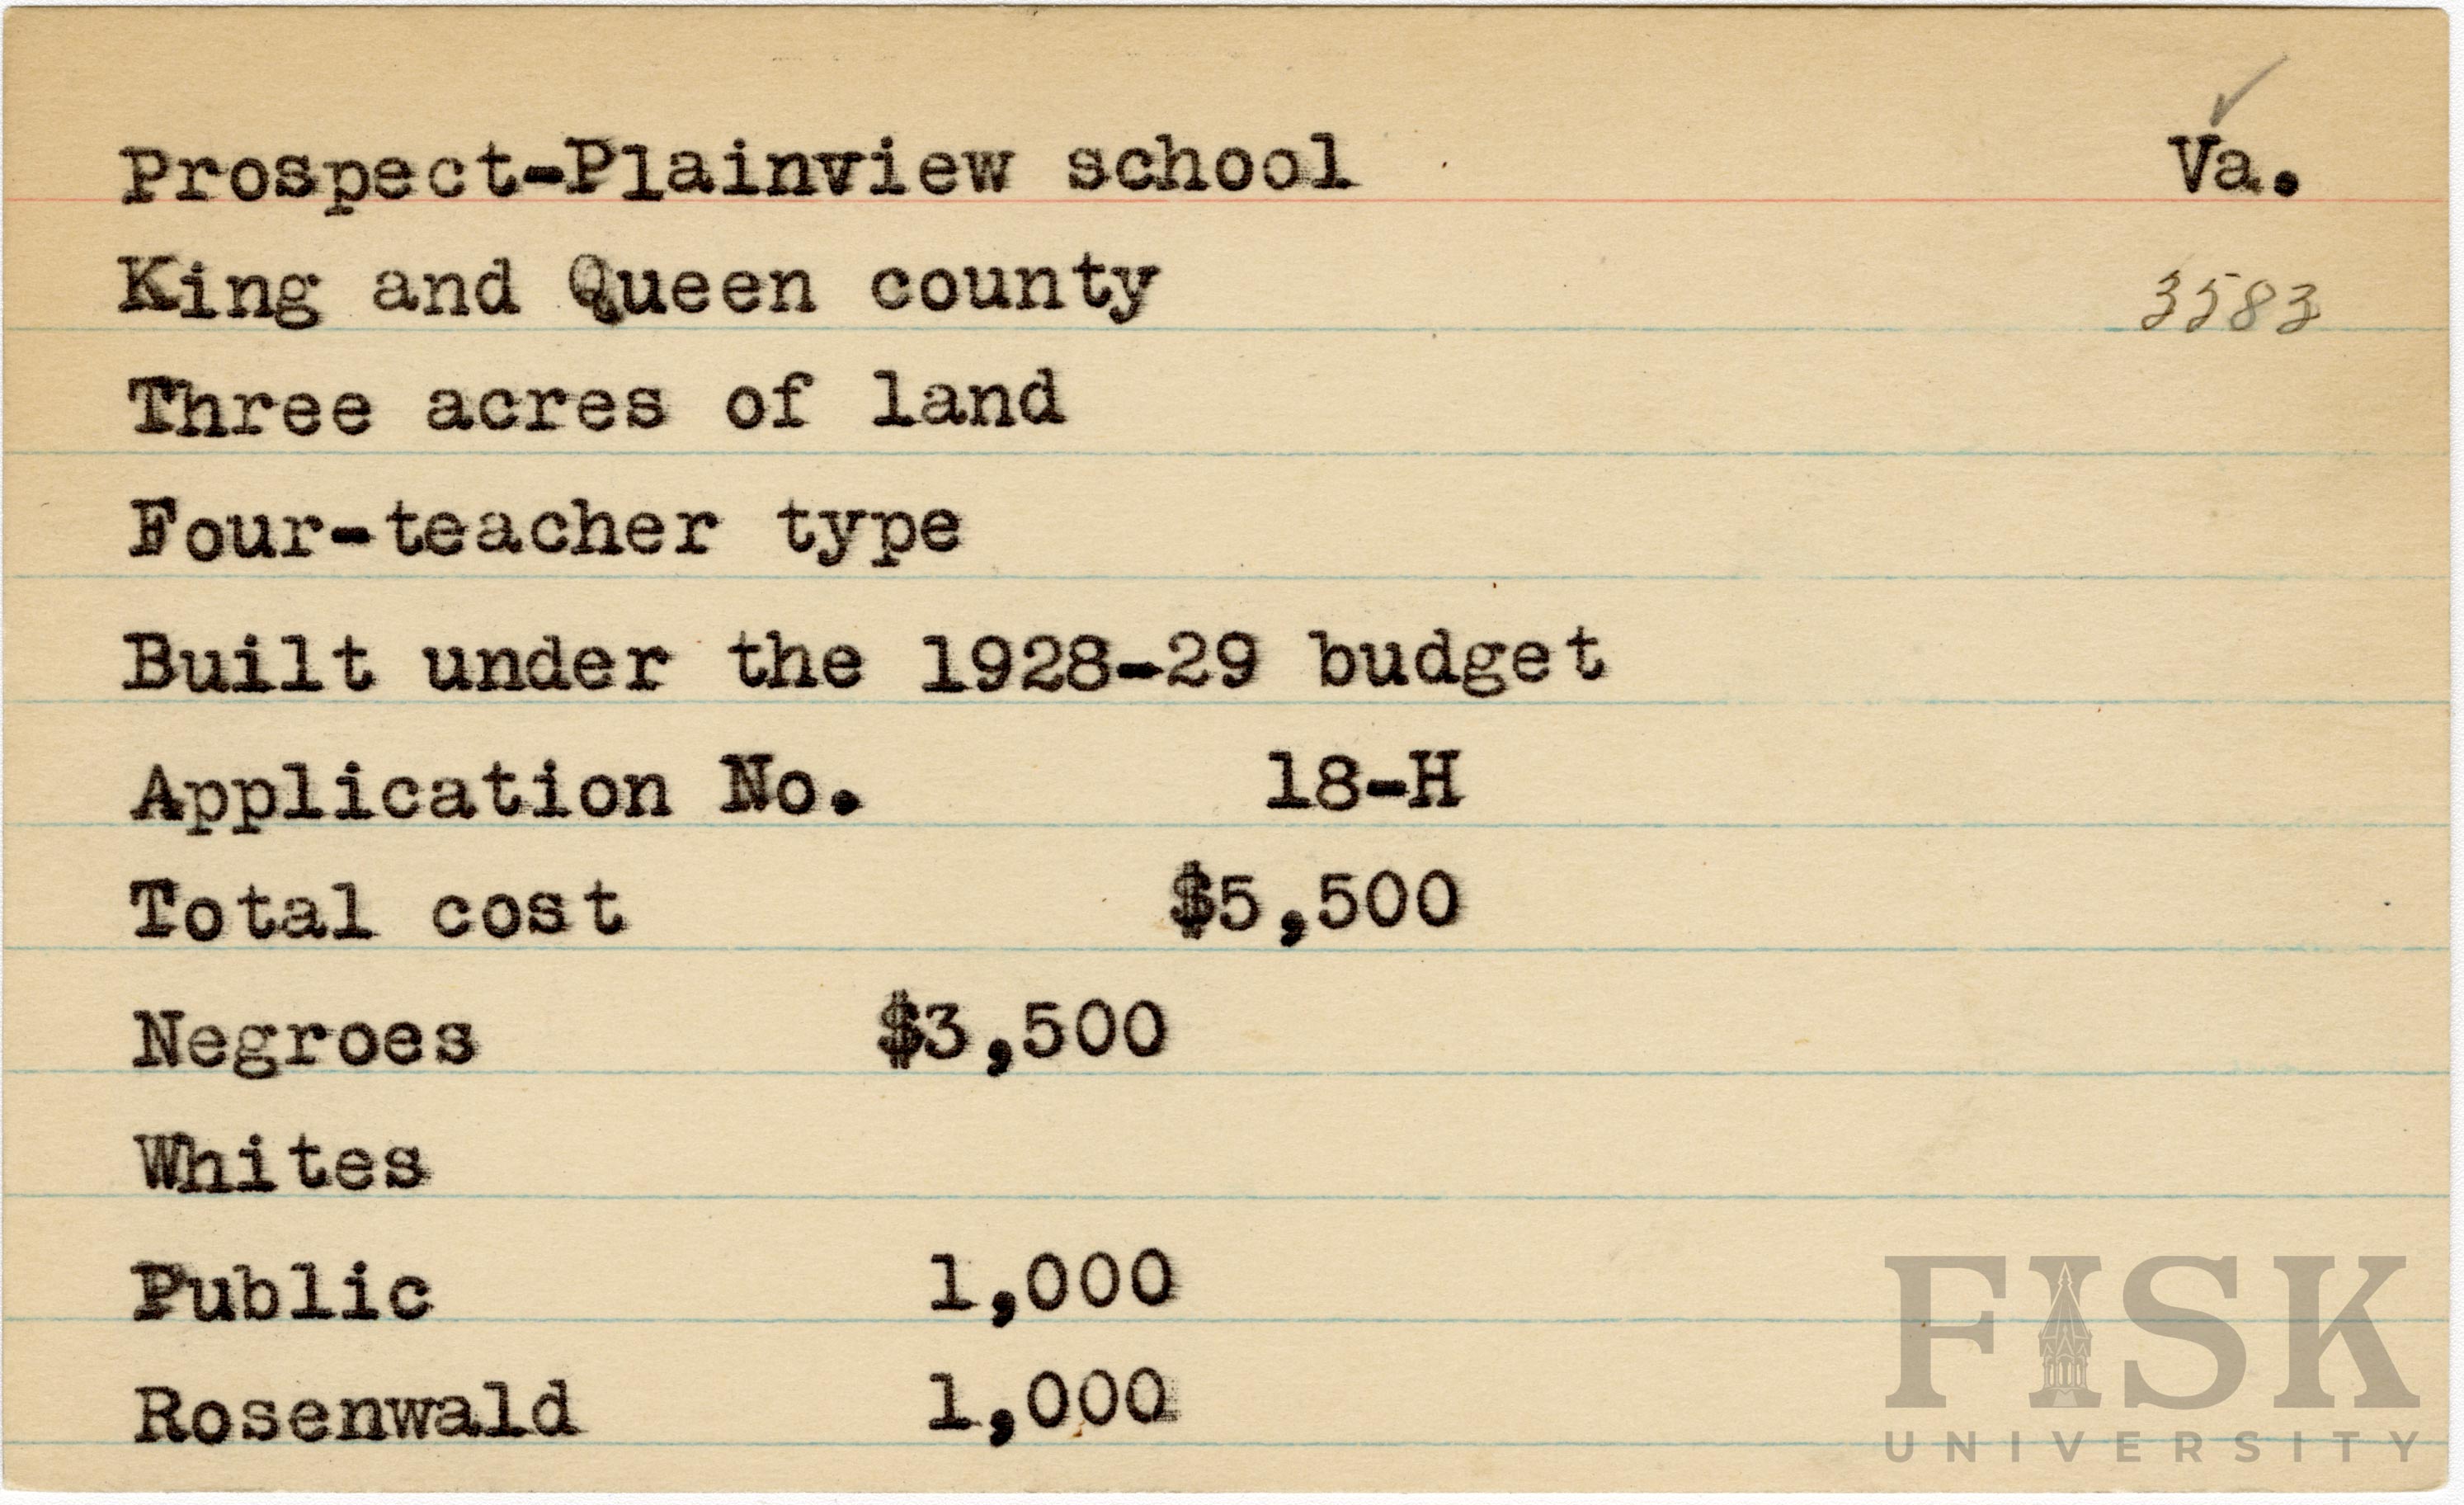 Prospect-Plainview school Va.
King and Queen county 3583
Three acres of land
Four-teacher type
Built under the 1928-29 budget
Application No. 18-H
Total cost $5,500
Negroes $3,500
Whites
Public 1,000
Rosenwald 1,000
FISK
UNIVERSITY